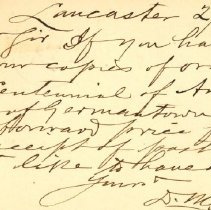 Lancaster 2
Sir If you ha
our copies of or
Centennial of
of Germantown
forward price
receipt of post
like to have
Yours
D. M